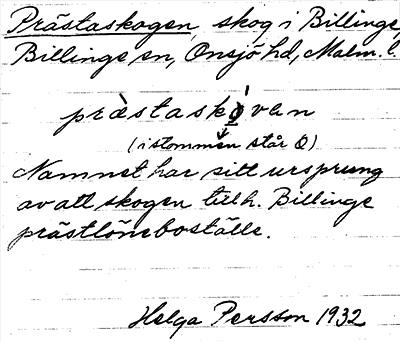 Prästaskogen, skog i Billinge,
Billinge sn, Onsjö hd, Malm. l.
prästaskòvan
(i stommen står O)
Namnet har sitt ursprung
av att skogen tillh. Billinge
prästlöneboställe.
Helga Persson 1932